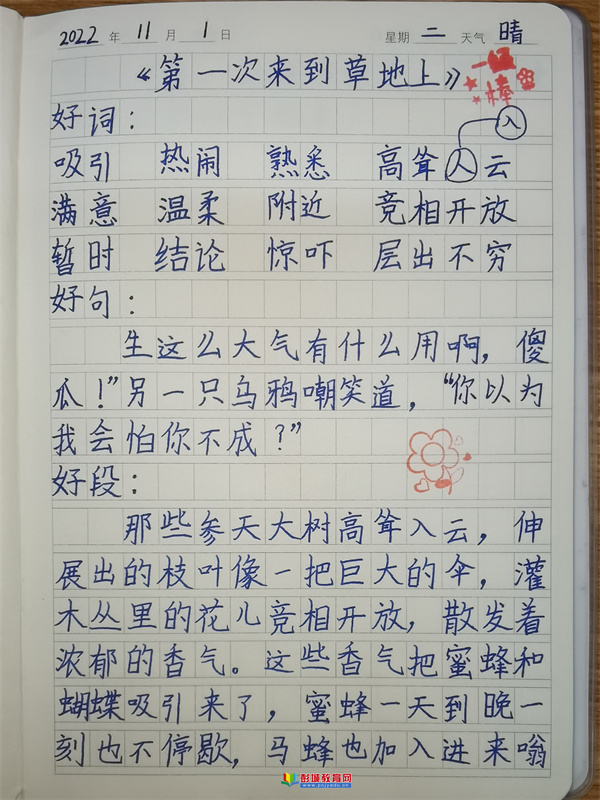 2022 年 11 月 1 日 星期 二 天气 晴
《第一次来到草地上》
一级棒
好词：
入
吸引 热闹 熟悉 高耸入云
满意 温柔 附近 竞相开放
暂时 结论 惊吓 层出不穷
好句：
生这么大气有什么用啊，傻
瓜！”另一只乌鸦嘲笑道，“你以为
我会怕你不成？”
好段：
那些参天大树高耸入云，伸
展出的枝叶像一把巨大的伞，灌
木丛里的花儿竞相开放，散发着
浓郁的香气。这些香气把蜜蜂和
蝴蝶吸引来了，蜜蜂一天到晚一
刻也不停歇，马蜂也加入进来嗡
彭城教育网
www.pcjyedu.cn